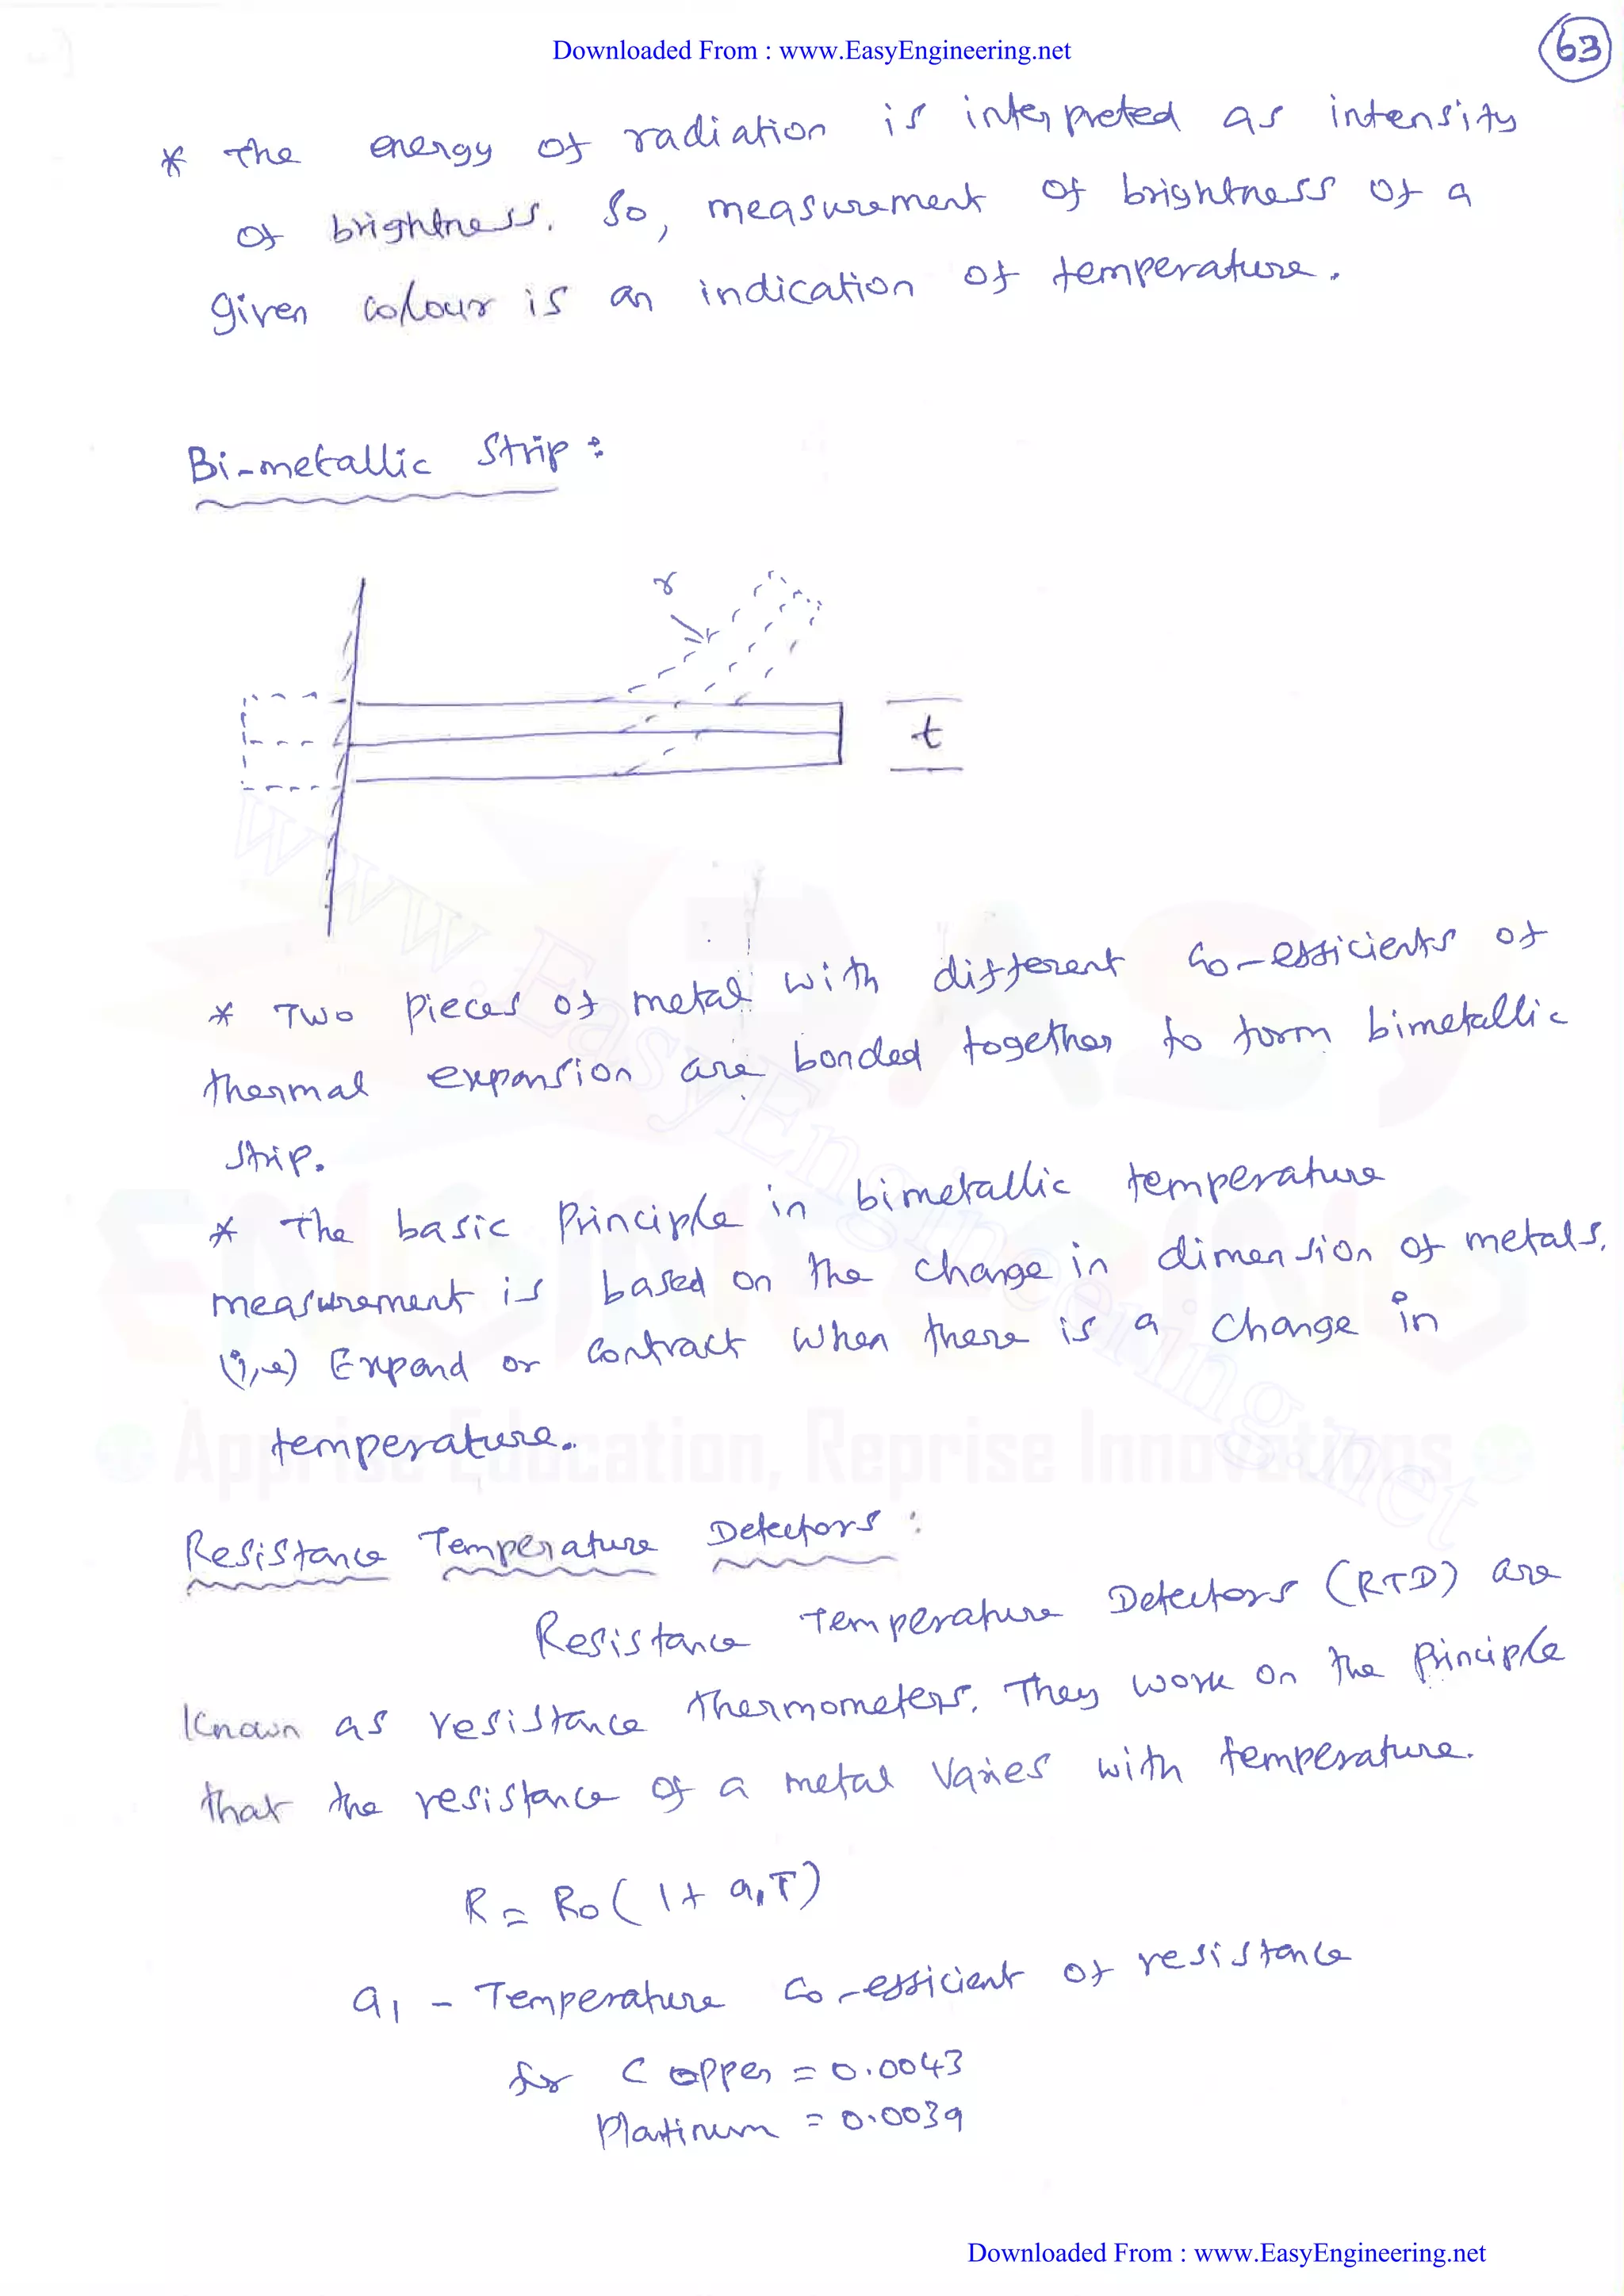 Downloaded From : www.EasyEngineering.net
63
* The energy of radiation is interpreted as intensity
of brightness. So, measurement of brightness of a
given colour is an indication of temperature.
Bi-metallic Strip :
r
t
* Two pieces of metal with different Co-efficients of
thermal expansion are bonded together to form bimetallic
strip.
* The basic Principle in bimetallic temperature
measurement is based on the change in dimension of metals.
(i,e) Expand or Contract when there is a change in
temperature.
Resistance Temperature Detectors :
Resistance Temperature Detectors (RTD) are
Known as resistance thermometers. They work on the Principle
that the resistance of a metal Varies with temperature.
R = Ro ( 1 + a1T)
a1 - Temperature Co-efficient of resistance
for Copper = 0.0043
Platinum = 0.0039
www.EasyEngineering.net
EASY
ENGINEERING
Apprise Education, Reprise Innovations
Downloaded From : www.EasyEngineering.net